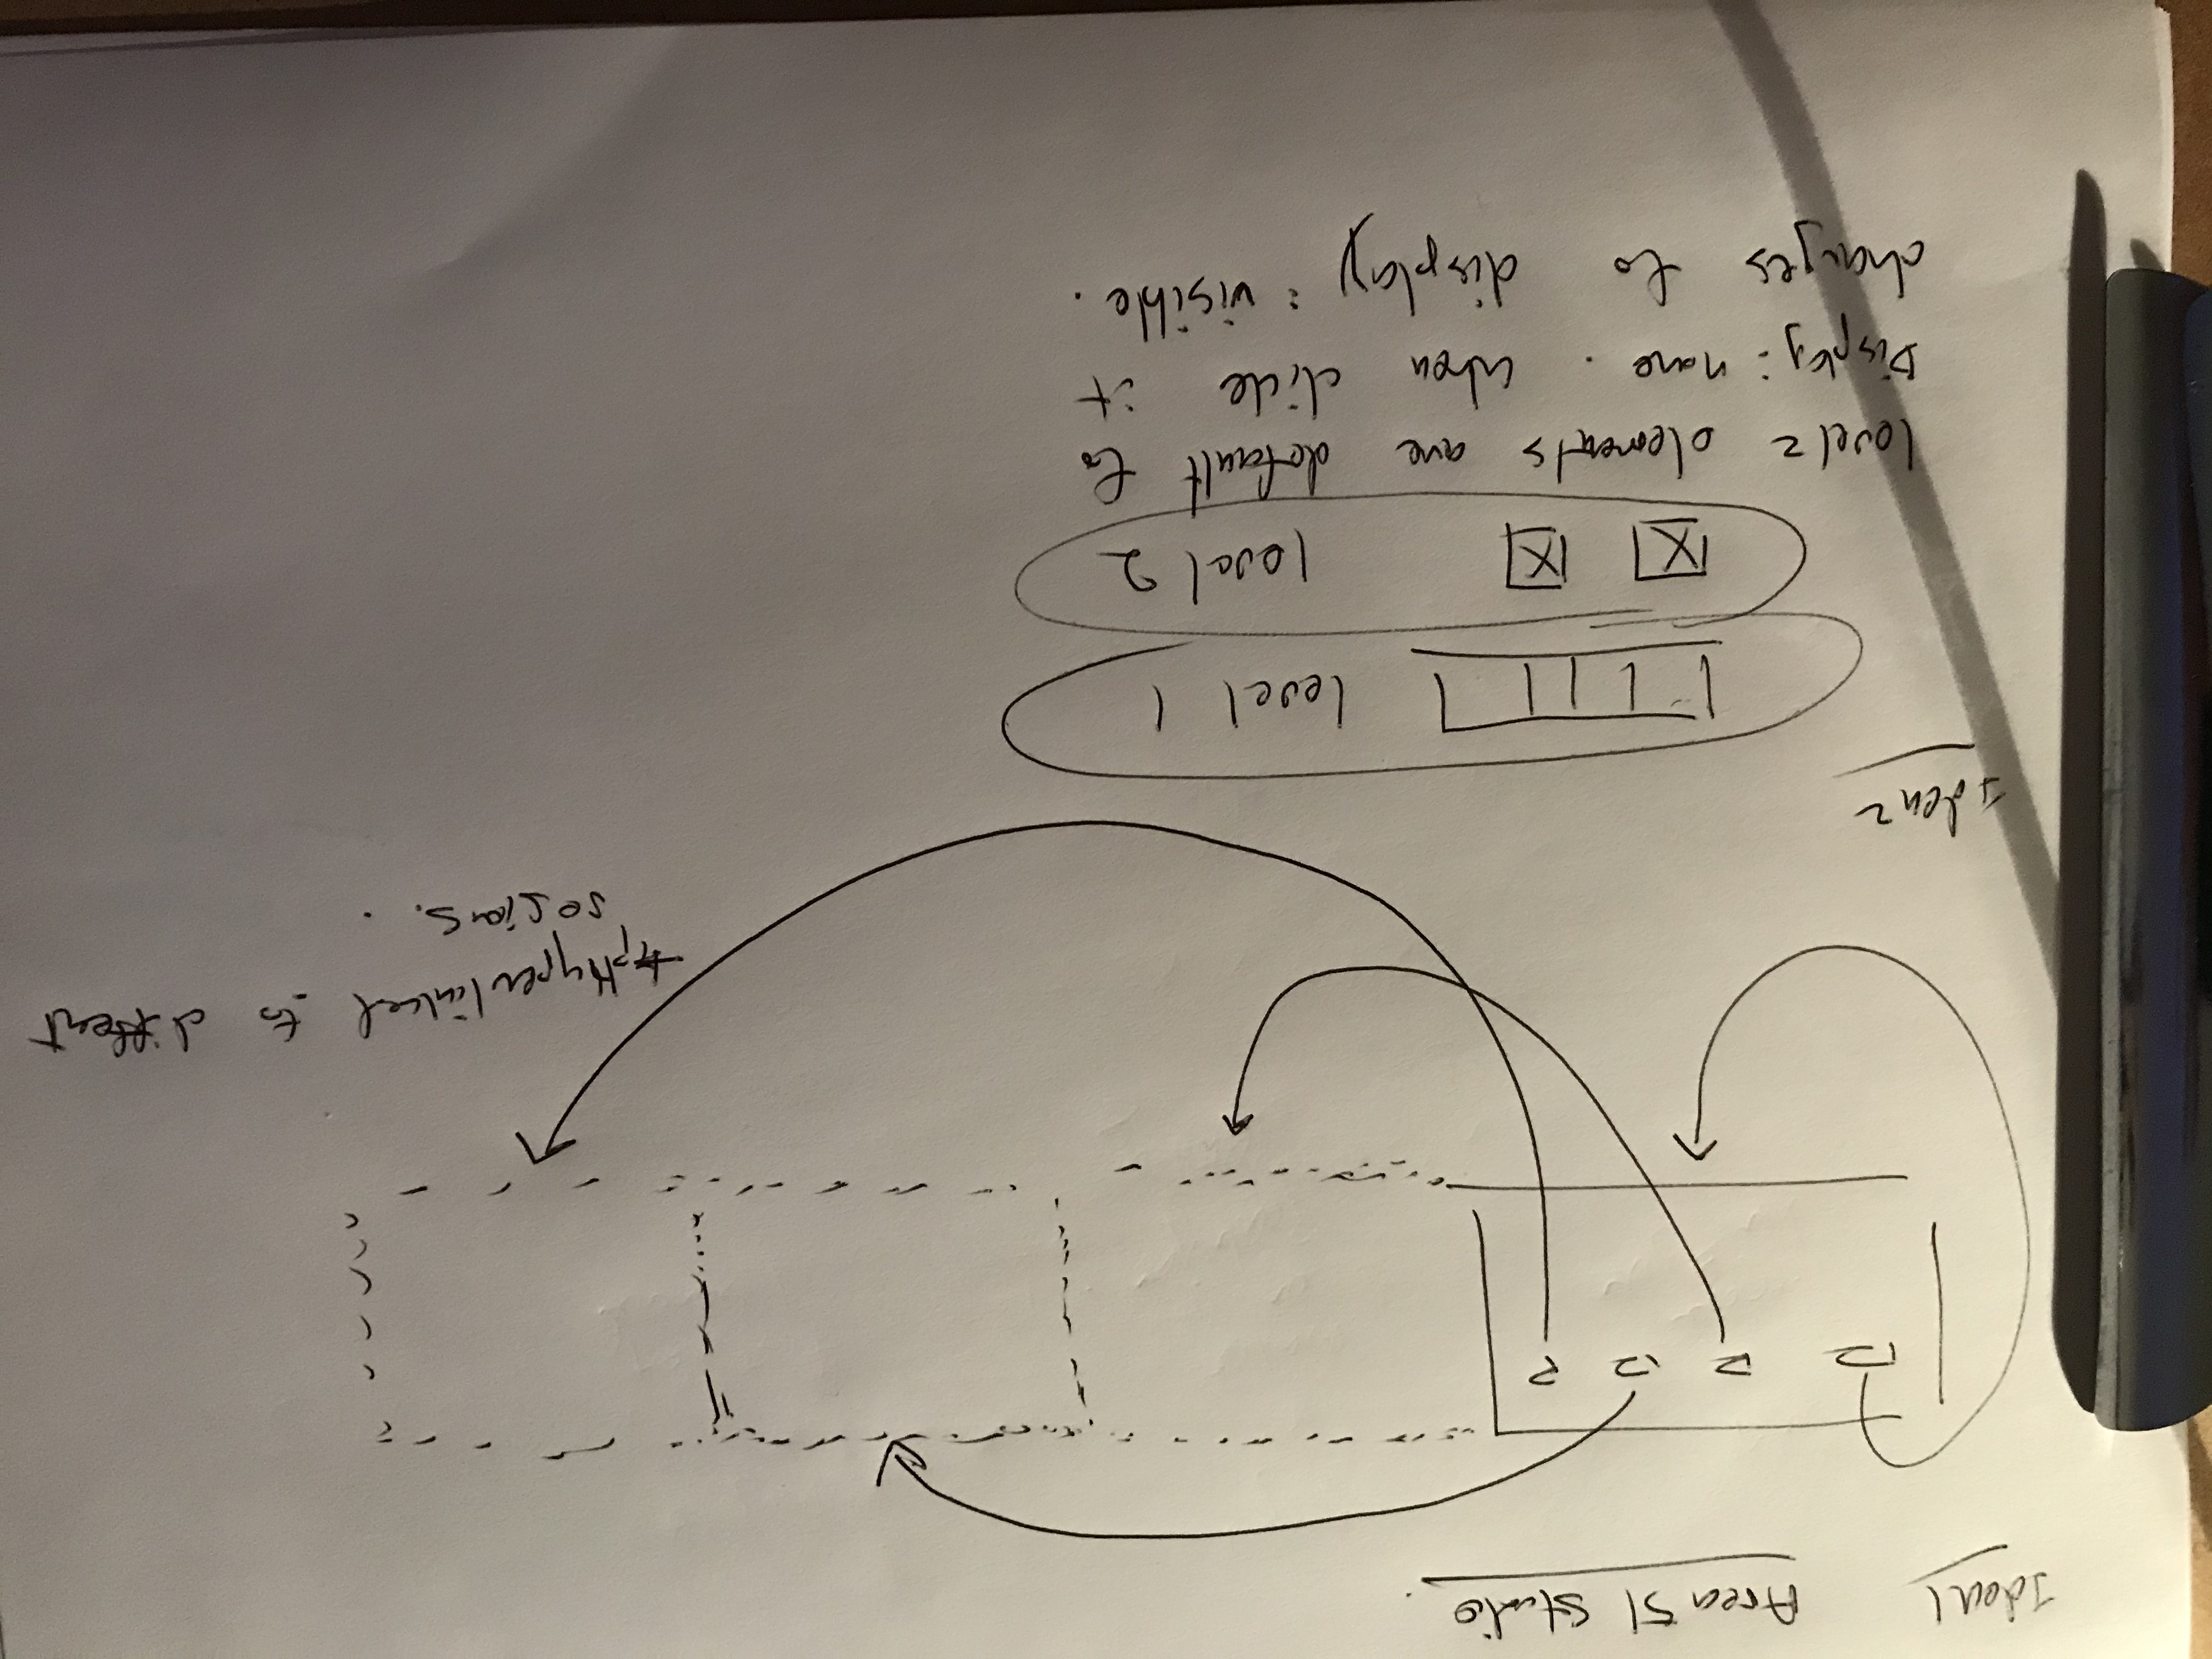 Idea1 Area 51 Studio.
Hyperlinked to diffent
sesions.
Idea2
level 1
level 2
level 2 elements are default to
Display: none. when click it
changes to display: visible.